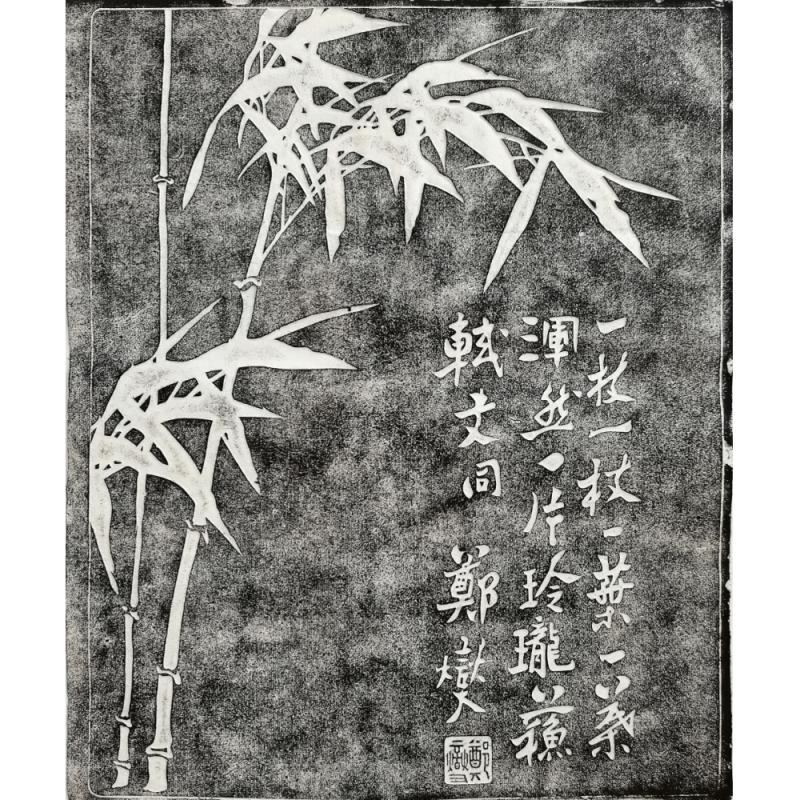 一枝一枝一葉一葉
渾然一片玲瓏蘇
軾文同 鄭燮